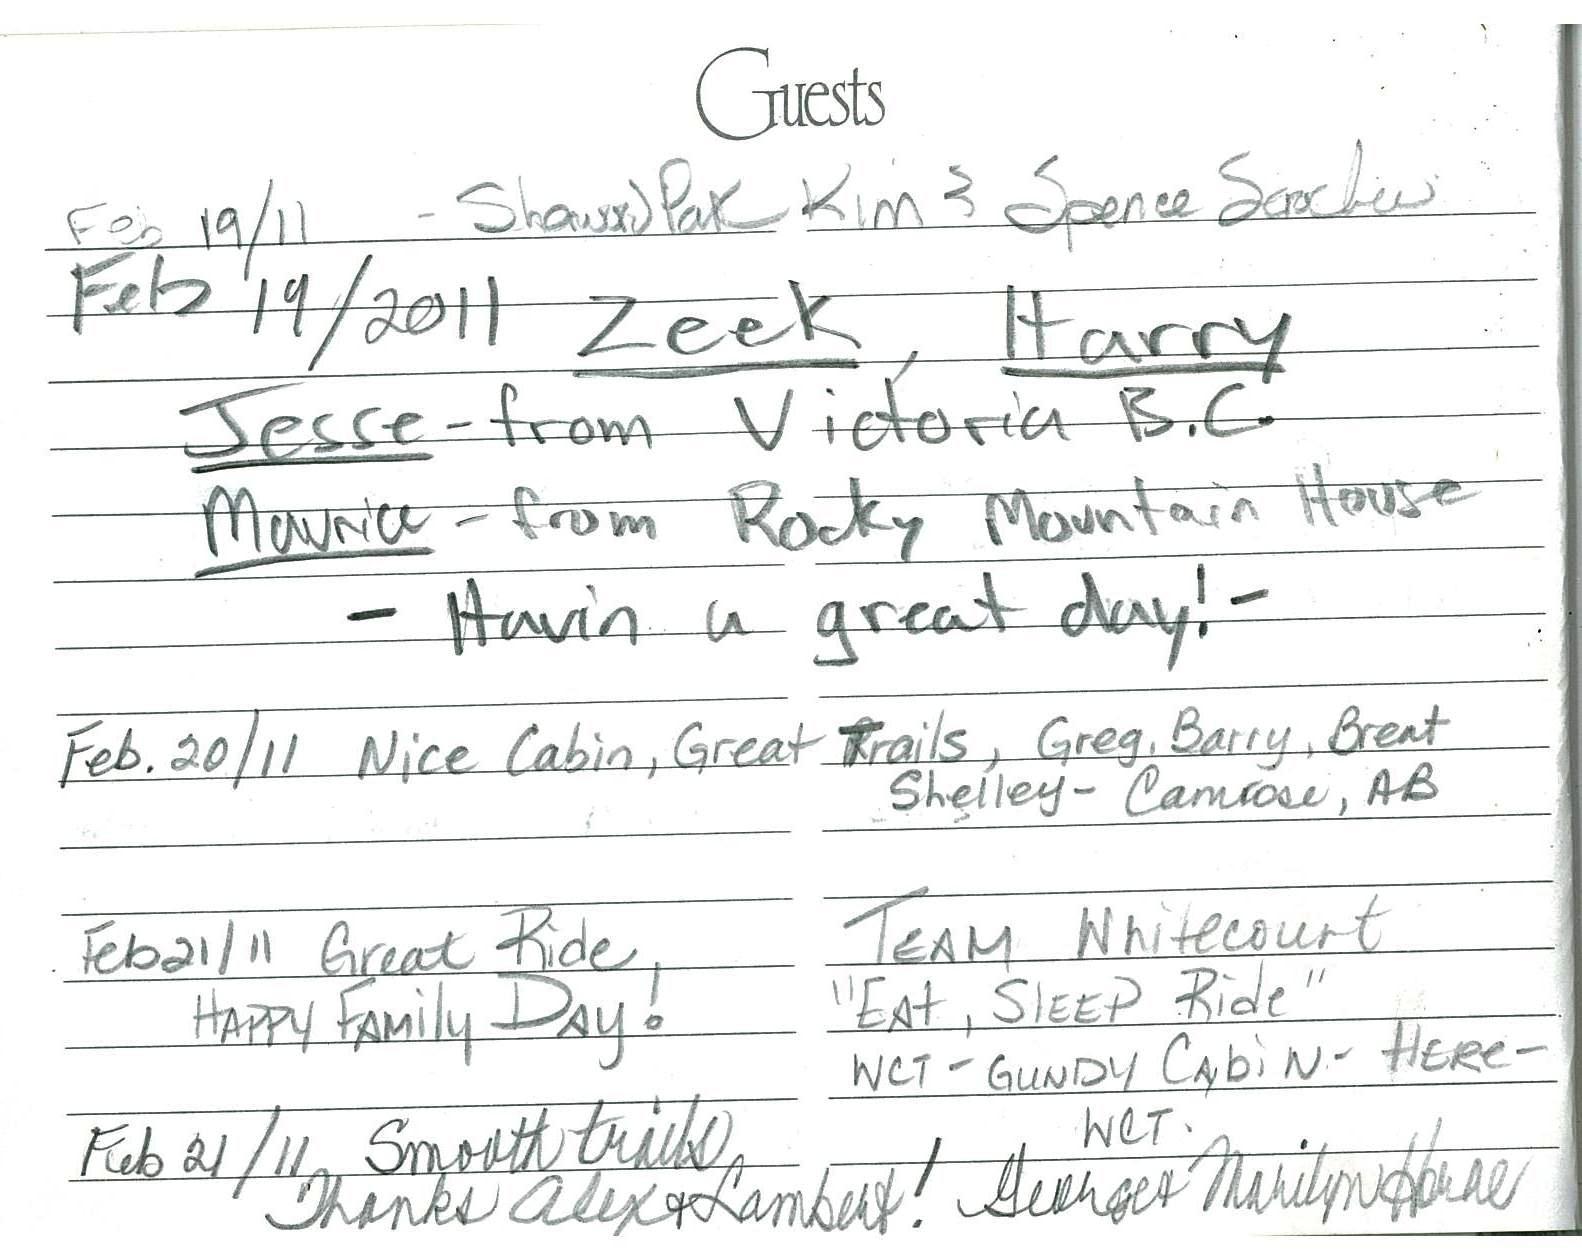 Guests
Feb 19/11 - Pak Kim & Spence
Feb 19/2011 Zeek, Harry
Jesse - from Victoria B.C.
Maurice - from Rocky Mountain House
- Havin a great day! -
Feb. 20/11 Nice Cabin, Great Trails, Greg, Barry, Brent
Shelley - Camrose, AB
Feb 21/11 Great Ride,
HAPPY FAMily DAy!
TEAM Whitecourt
"EAt, SLEEP Ride"
WCT - GUNDY CAbiN - HERE -
WCT.
Feb 21/11 Smooth trails
Thanks Alex & Lambert! George & Marilyn Horne